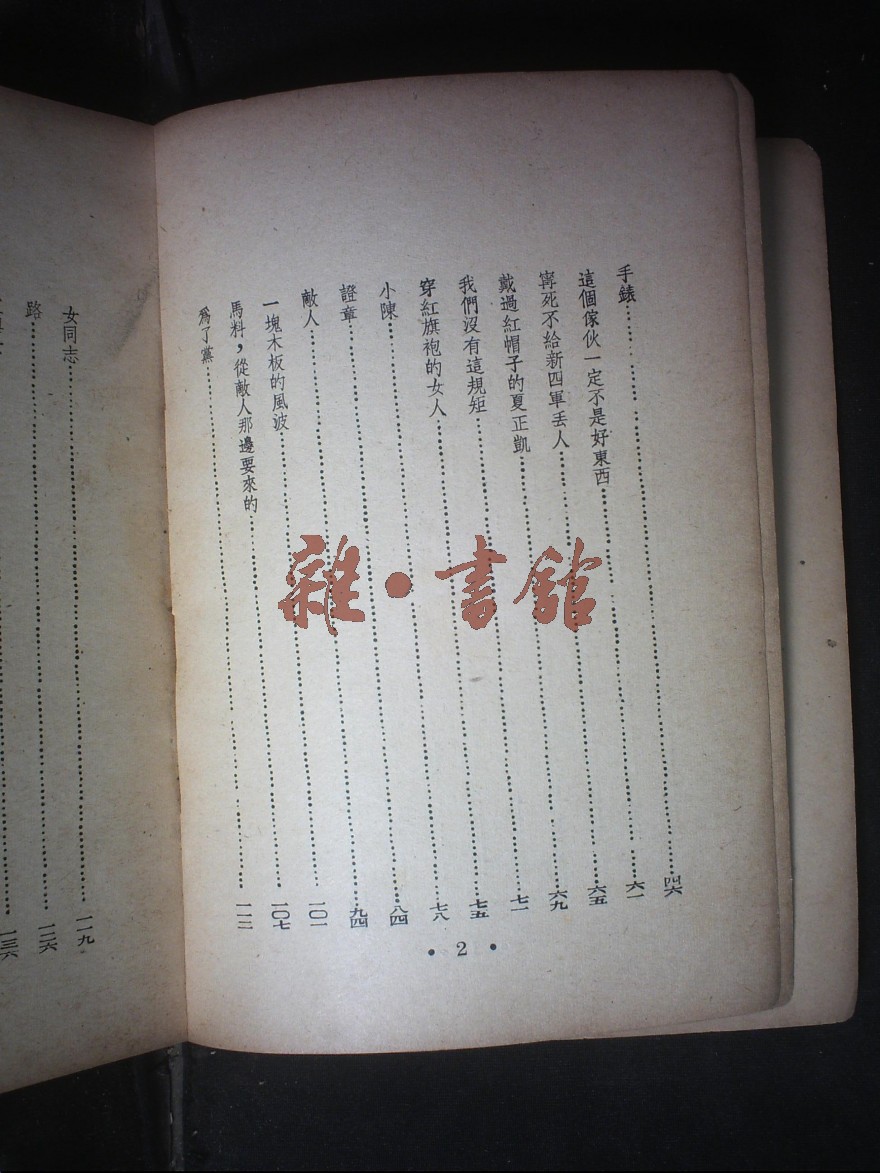 手錶……四六
這個傢伙一定不是好東西……六一
寧死不給新四軍丟人……六五
戴過紅帽子的夏正凱……六九
我們沒有這規矩……七一
穿紅旗袍的女人……七五
小陳……七八
證章……八四
敵人……九四
一塊木板的風波……一〇一
馬料，從敵人那邊要來的……一〇七
爲了黨……一一二
• 2 •
女同志……一一九
路……一二六
一三六
雜·書館